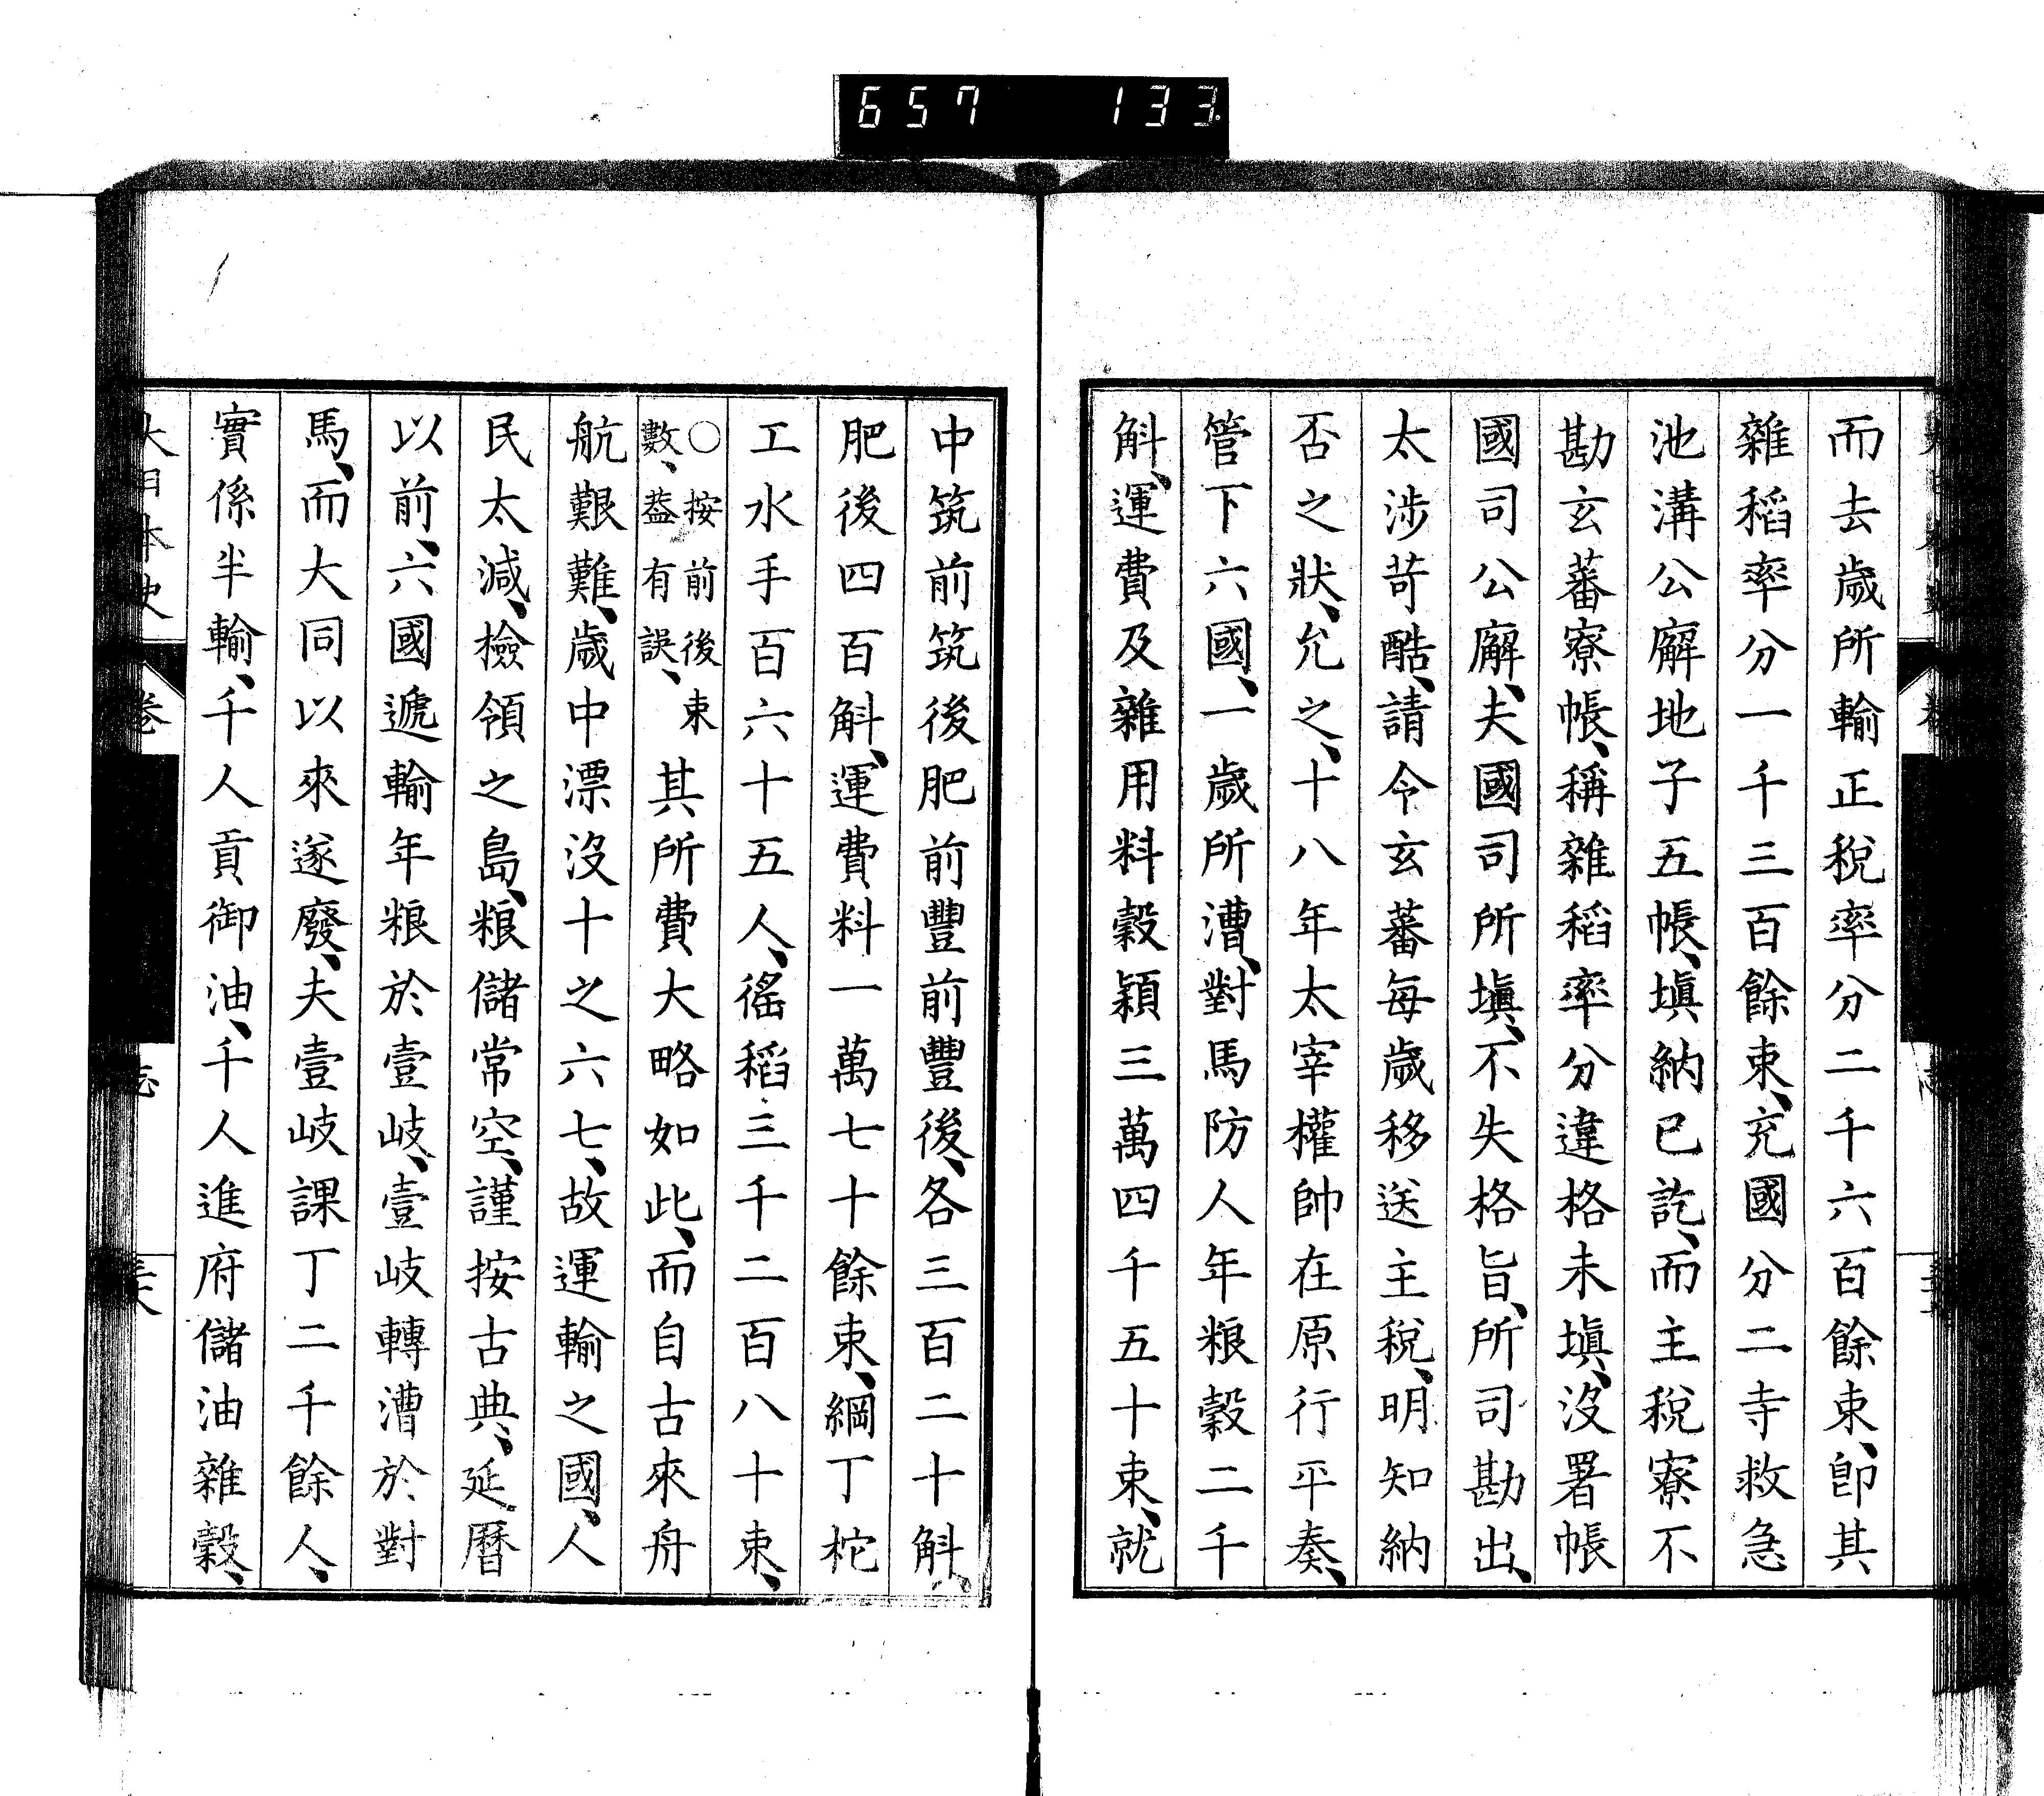 657 133
而去歲所輸正稅率分二千六百餘束、卽其
雜稻率分一千三百餘束、充國分二寺救急
池溝公廨地子五帳、塡納已訖、而主稅寮不
勘玄蕃寮帳、稱雜稻率分違格未塡、沒署帳
國司公廨、夫國司所塡、不失格旨、所司勘出、
太涉苛酷、請令玄蕃每歲移送主稅、明知納
否之狀、允之、十八年太宰權帥在原行平奏、
管下六國、一歲所漕、對馬防人年粮穀二千
斛、運費及雜用料穀穎三萬四千五十束、就
中筑前筑後肥前豐前豐後、各三百二十斛、
肥後四百斛、運費料一萬七十餘束、綱丁柁
工水手百六十五人、徭稻三千二百八十束、
○按前後束數、蓋有誤、其所費大略如此、而自古來舟
航艱難、歲中漂沒十之六七、故運輸之國、人
民太減、檢領之島、粮儲常空、謹按古典、延曆
以前、六國遞輸年粮於壹岐、壹岐轉漕於對
馬、而大同以來遂廢、夫壹岐課丁二千餘人、
實係半輸、千人貢御油、千人進府儲油雜穀、
大日本史 卷 志